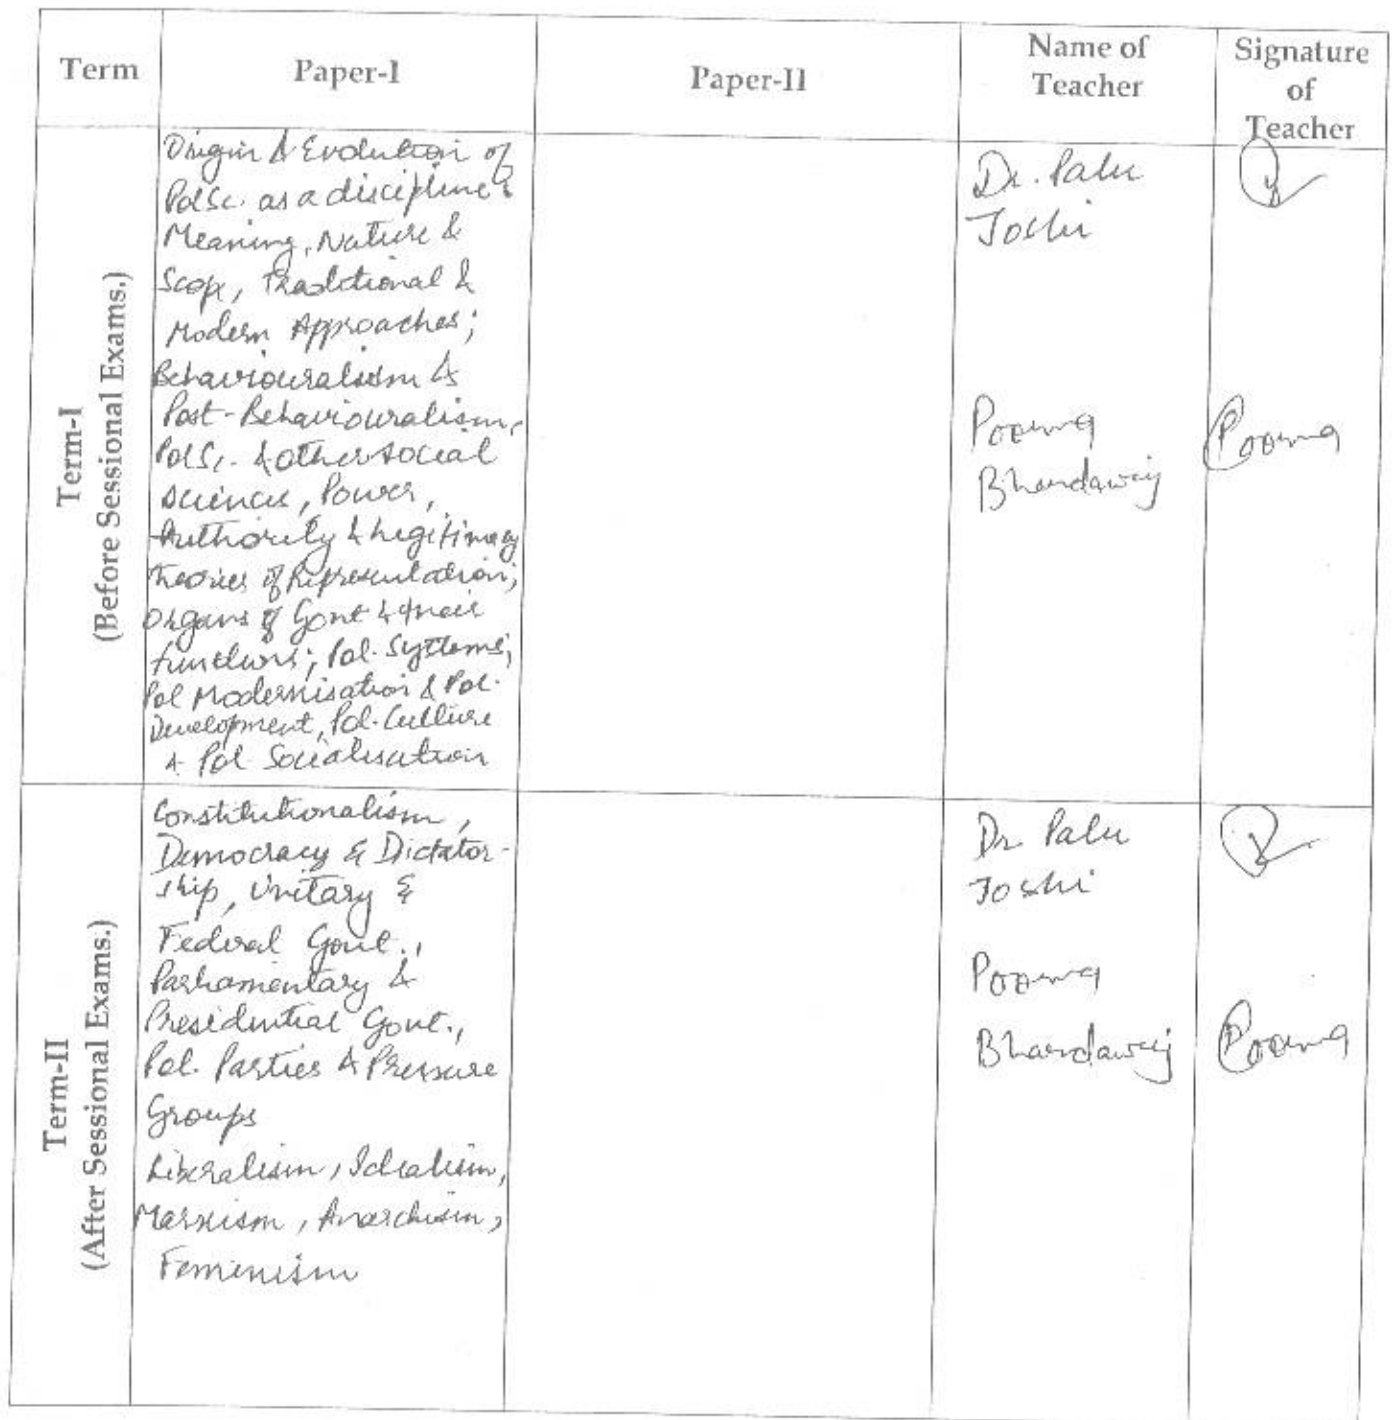 Term
Paper-I
Paper-II
Name of
Teacher
Signature
of
Teacher
Term-I
(Before Sessional Exams.)
Origin & Evolution of
PolSc. as a discipline
Meaning, Nature &
Scope, Traditional &
Modern Approaches;
Behaviouralism &
Post-Behaviouralism,
PolSc. & other social
sciences, Power,
Authority & Legitimacy
Theories of Representation;
Organs of Govt & their
functions; Pol. Systems;
Pol Modernisation & Pol.
Development, Pol. Culture
& Pol Socialisation
Dr. Palu
Joshi
Poonng
Bhardawaj
Poonng
Term-II
(After Sessional Exams.)
Constitutionalism,
Democracy & Dictator-
ship, Unitary &
Federal Govt.,
Parliamentary &
Presidential Govt.,
Pol. Parties & Pressure
Groups
Liberalism, Idealism,
Marxism, Anarchism,
Feminism
Dr. Palu
Joshi
Bhardawaj